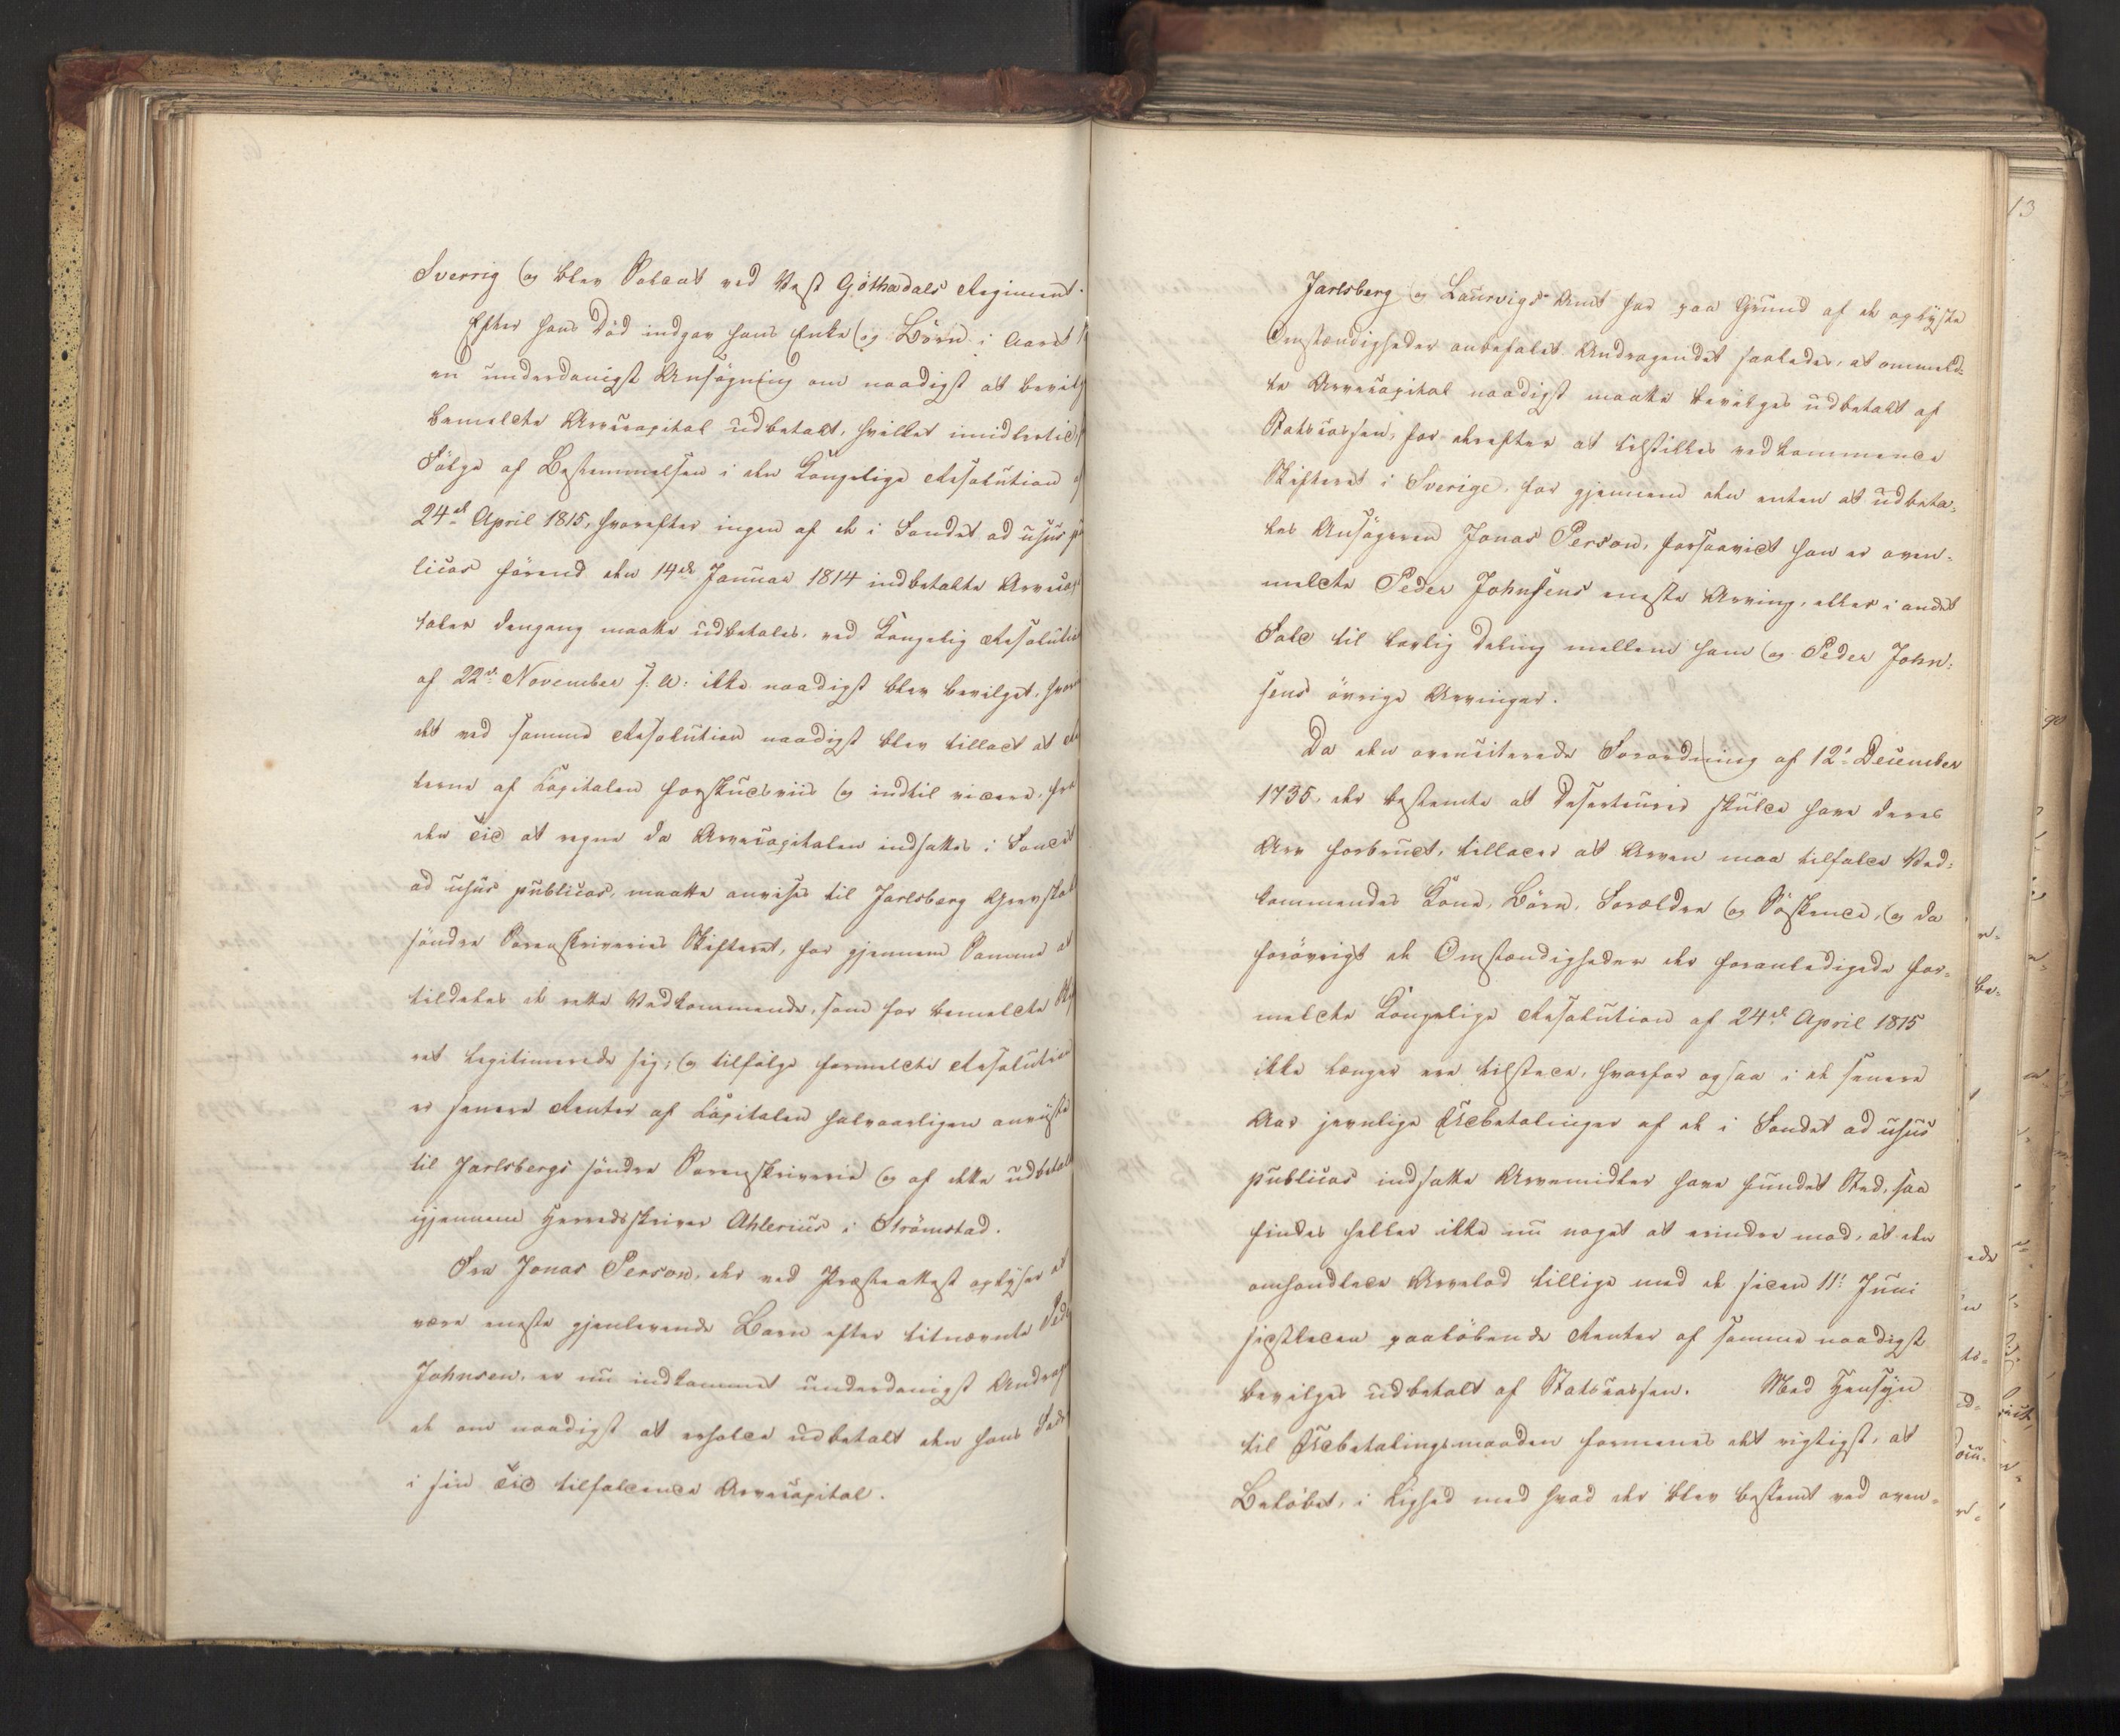 Sverrig og blev Soldat ved Vest Göthadals Regiment.
Efter hans Död indgav hans Enke og Börn i Aaret
en underdanigst Ansögning om naadigst at bevilg
bemeldte Arvecapital udbetalt, hvilket imidlertid
Fölge af Bestemmelsen i den Kongelige Resolution
24de April 1815, hvorefter ingen af de i Fondet ad usus p
licos förend den 14de Januar 1814 indbetalte Arvecap
taler dengang maatte udbetales, ved Kongelig Resolution
af 22de November s: A: ikke naadigst blev bevilget, hvor
det ved samme Resolution naadigst blev tilladt at
terne af Kapitalen forskudsviis og indtil videre, fra
den Tid at regne da Arvecapitalen indsattes i Fondet
ad usus publicos, maatte anvises til Jarlsberg Grevskab
söndre Sorenskriveries Skifteret, for gjennem Samme at
tildeles de rette Vedkommende, som for bemeldte Skif
ret legitimerede sig; og tilfölge formeldte Resolution
er senere Renter af Kapitalen halvaarligen anviste
til Jarlsbergs söndre Sorenskriverie og af dette udbetalt
gjennem Herredsskriver Ahlerius i Strömstad.
Fra Jonas Person, der ved Præsteattest oplyser at
være eneste gjenlevende Barn efter titnævnte Peder
Johnsen, er nu indkommet underdanigst Andrag
de om naadigst at erholde udbetalt den hans Fader
i sin Tid tilfaldende Arvecapital.
Jarlsberg og Laurvigs Amt har paa Grund af de oplyste
Omstændigheder anbefalet Andragendet saaledes, at ommeld-
te Arvecapital naadigst maatte bevilges udbetalt af
Statscassen, for derefter at tilstilles vedkommende
Skifteret i Sverige, for gjennem den enten at udbeta-
les Ansögeren Jonas Person, forsaavidt han er oven-
meldte Peder Johnsens eneste Arving, eller i andet
Fald til lovlig Deling mellem ham og Peder John-
sens övrige Arvinger.
Da den ovenciterede Forordning af 12te December
1735 der bestemte at Deserteurer skulde have deres
Arv forbrudt, tillader at Arven maa tilfalde Ved-
kommendes Kone, Börn, Forældre og Söskende, og da
forövrigt de Omstændigheder der foranledigede for-
meldte Kongelige Resolution af 24de April 1815
ikke længer ere tilstede, hvorfor ogsaa i de senere
Aar jevnlige Udbetalinger af de i Fondet ad usus
publicos indsatte Arvemidler have fundet Sted, saa
findes heller ikke nu noget at erindre mod, at den
omhandlede Arvelod tillige med de siden 11te Juni
sidstleden paalöbende Renter af samme naadigst
bevilges udbetalt af Statscassen. Med Hensyn
til Udbetalingsmaaden formenes det rigtigst, at
Belöbet, i Lighed med hvad der blev bestemt ved oven-
13